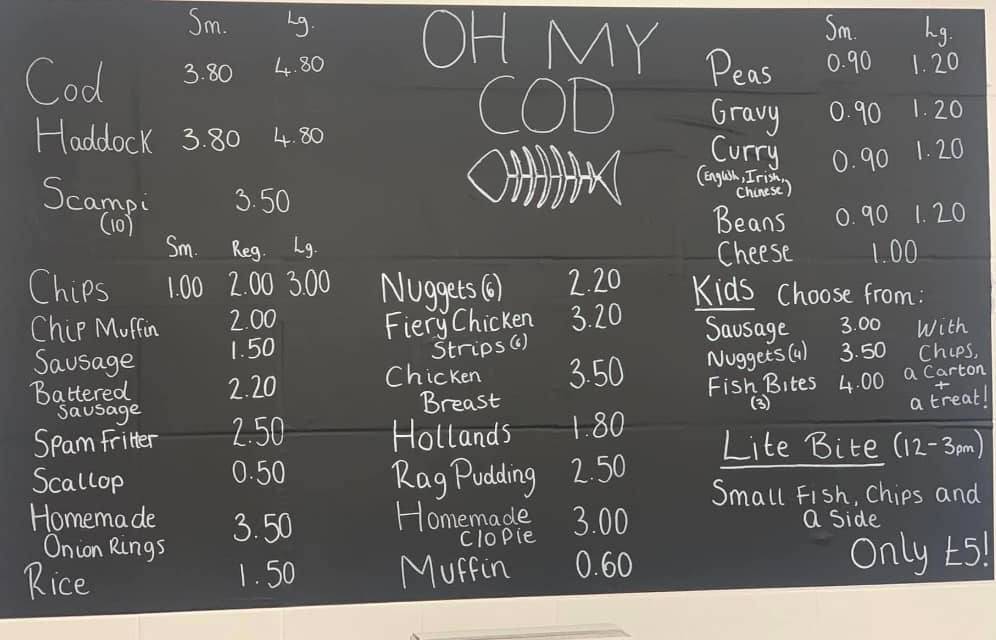 OH MY
COD
Sm. Lg.
Cod 3.80 4.80
Haddock 3.80 4.80
Scampi 3.50
(10)
Sm. Reg. Lg.
Chips 1.00 2.00 3.00
Chip Muffin 2.00
Sausage 1.50
Battered 2.20
Sausage
Spam Fritter 2.50
Scallop 0.50
Homemade 3.50
Onion Rings
Rice 1.50
Nuggets (6) 2.20
Fiery Chicken 3.20
Strips (6)
Chicken 3.50
Breast
Hollands 1.80
Rag Pudding 2.50
Homemade 3.00
Clo Pie
Muffin 0.60
Sm. Lg.
Peas 0.90 1.20
Gravy 0.90 1.20
Curry 0.90 1.20
(English, Irish,
Chinese)
Beans 0.90 1.20
Cheese 1.00
Kids Choose from:
Sausage 3.00
Nuggets (4) 3.50
Fish Bites 4.00
(3)
With
Chips,
a Carton
+
a treat!
Lite Bite (12-3pm)
Small Fish, Chips and
a Side
Only £5!